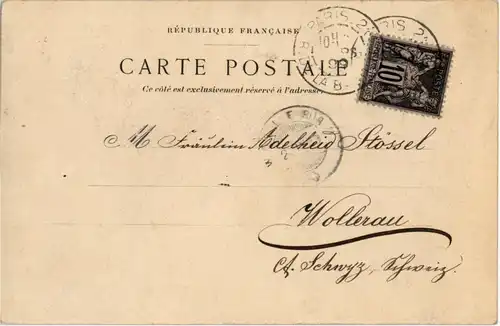 RÉPUBLIQUE FRANÇAISE
CARTE POSTALE
Ce côté est exclusivement réservé à l'adresse
PARIS
PARIS
10
M Fräulein Adelheid Stössel
Wollerau
Ct. Schwyz, Schweiz.